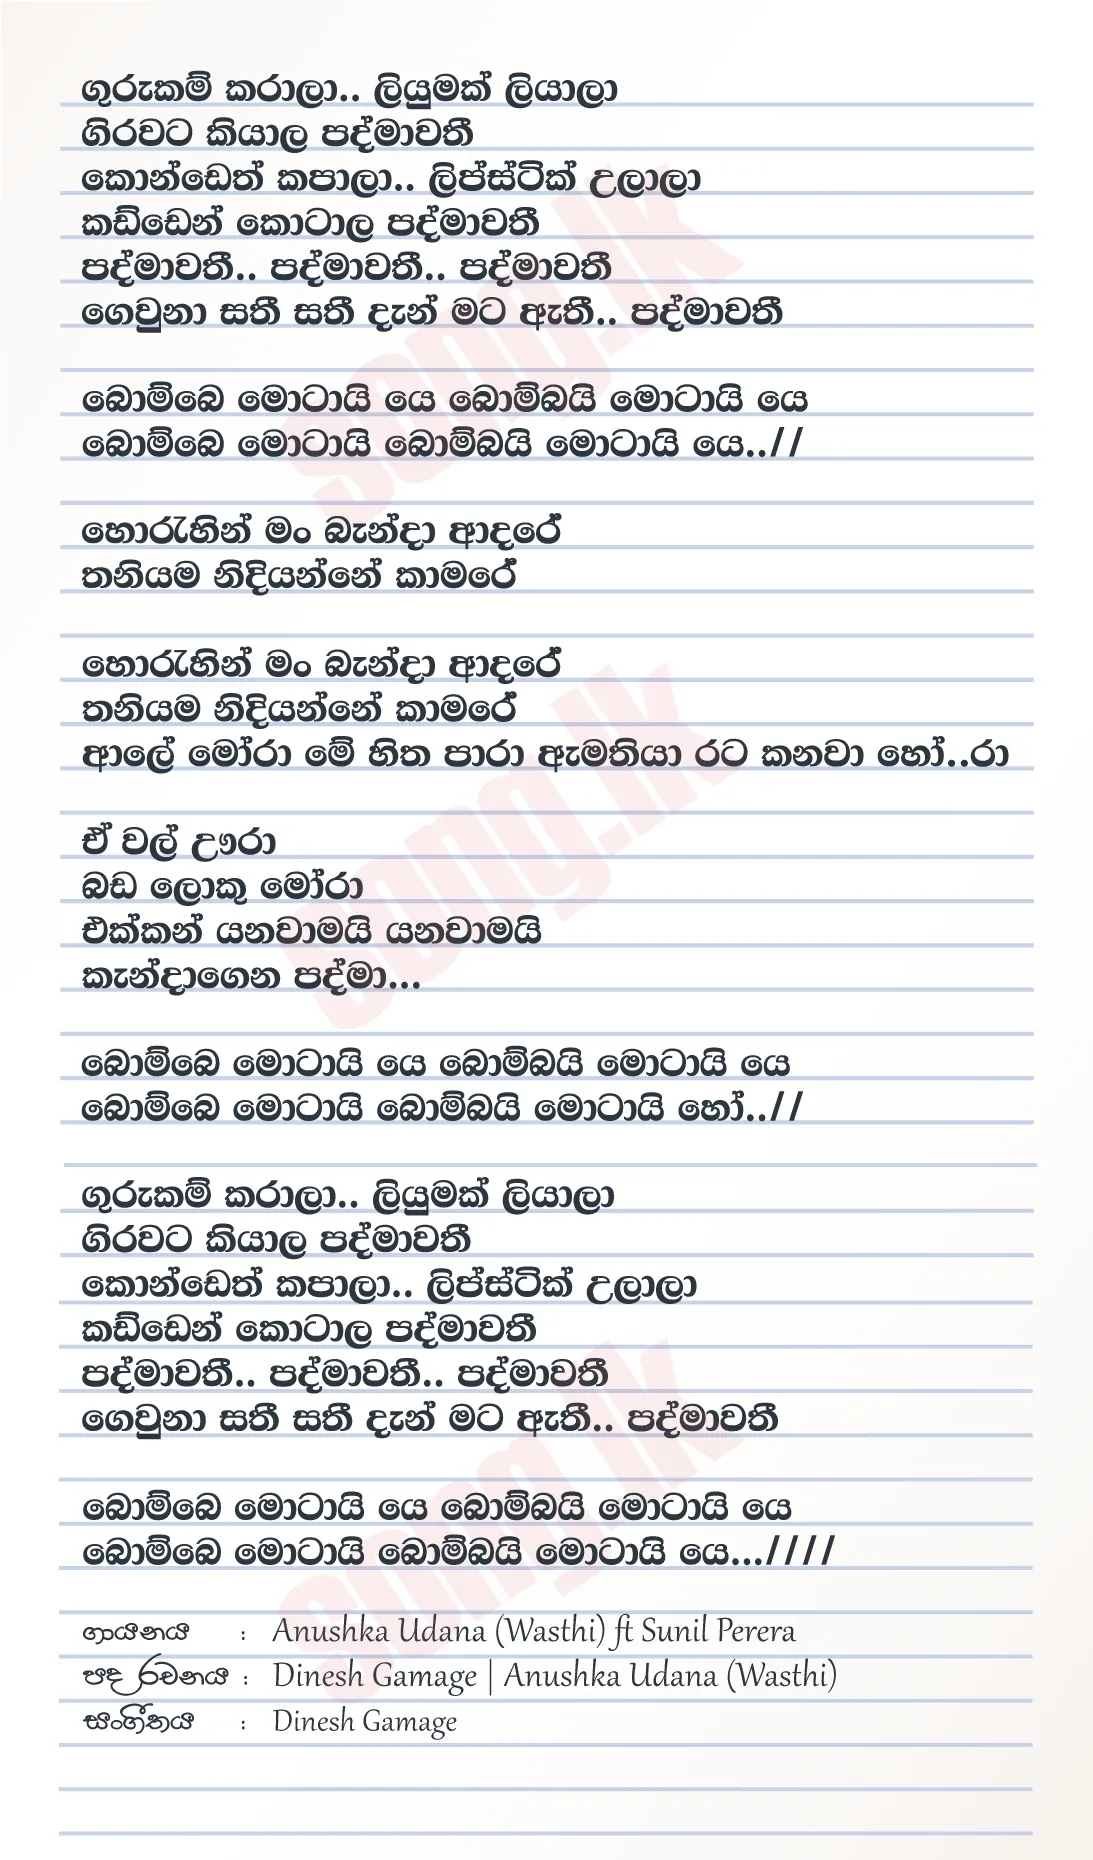 ගුරුකම් කරාලා.. ලියුමක් ලියාලා
ගිරවට කියාල පද්මාවතී
කොන්ඩෙත් කපාලා.. ලිප්ස්ටික් උලාලා
කඩ්ඩෙන් කොටාල පද්මාවතී
පද්මාවතී.. පද්මාවතී.. පද්මාවතී
ගෙවුනා සතී සතී දැන් මට ඇතී.. පද්මාවතී
බොම්බෙ මොටායි යෙ බොම්බයි මොටායි යෙ
බොම්බෙ මොටායි බොම්බයි මොටායි යෙ..//
හොරැහින් මං බැන්දා ආදරේ
තනියම නිදියන්නේ කාමරේ
හොරැහින් මං බැන්දා ආදරේ
තනියම නිදියන්නේ කාමරේ
ආලේ මෝරා මේ හිත පාරා ඇමතියා රට කනවා හෝ..රා
ඒ වල් ඌරා
බඩ ලොකු මෝරා
එක්කන් යනවාමයි යනවාමයි
කැන්දාගෙන පද්මා...
බොම්බෙ මොටායි යෙ බොම්බයි මොටායි යෙ
බොම්බෙ මොටායි බොම්බයි මොටායි හෝ..//
ගුරුකම් කරාලා.. ලියුමක් ලියාලා
ගිරවට කියාල පද්මාවතී
කොන්ඩෙත් කපාලා.. ලිප්ස්ටික් උලාලා
කඩ්ඩෙන් කොටාල පද්මාවතී
පද්මාවතී.. පද්මාවතී.. පද්මාවතී
ගෙවුනා සතී සතී දැන් මට ඇතී.. පද්මාවතී
බොම්බෙ මොටායි යෙ බොම්බයි මොටායි යෙ
බොම්බෙ මොටායි බොම්බයි මොටායි යෙ...////
ගායනය : Anushka Udana (Wasthi) ft Sunil Perera
පද රචනය : Dinesh Gamage | Anushka Udana (Wasthi)
සංගීතය : Dinesh Gamage
song.lk
song.lk
song.lk